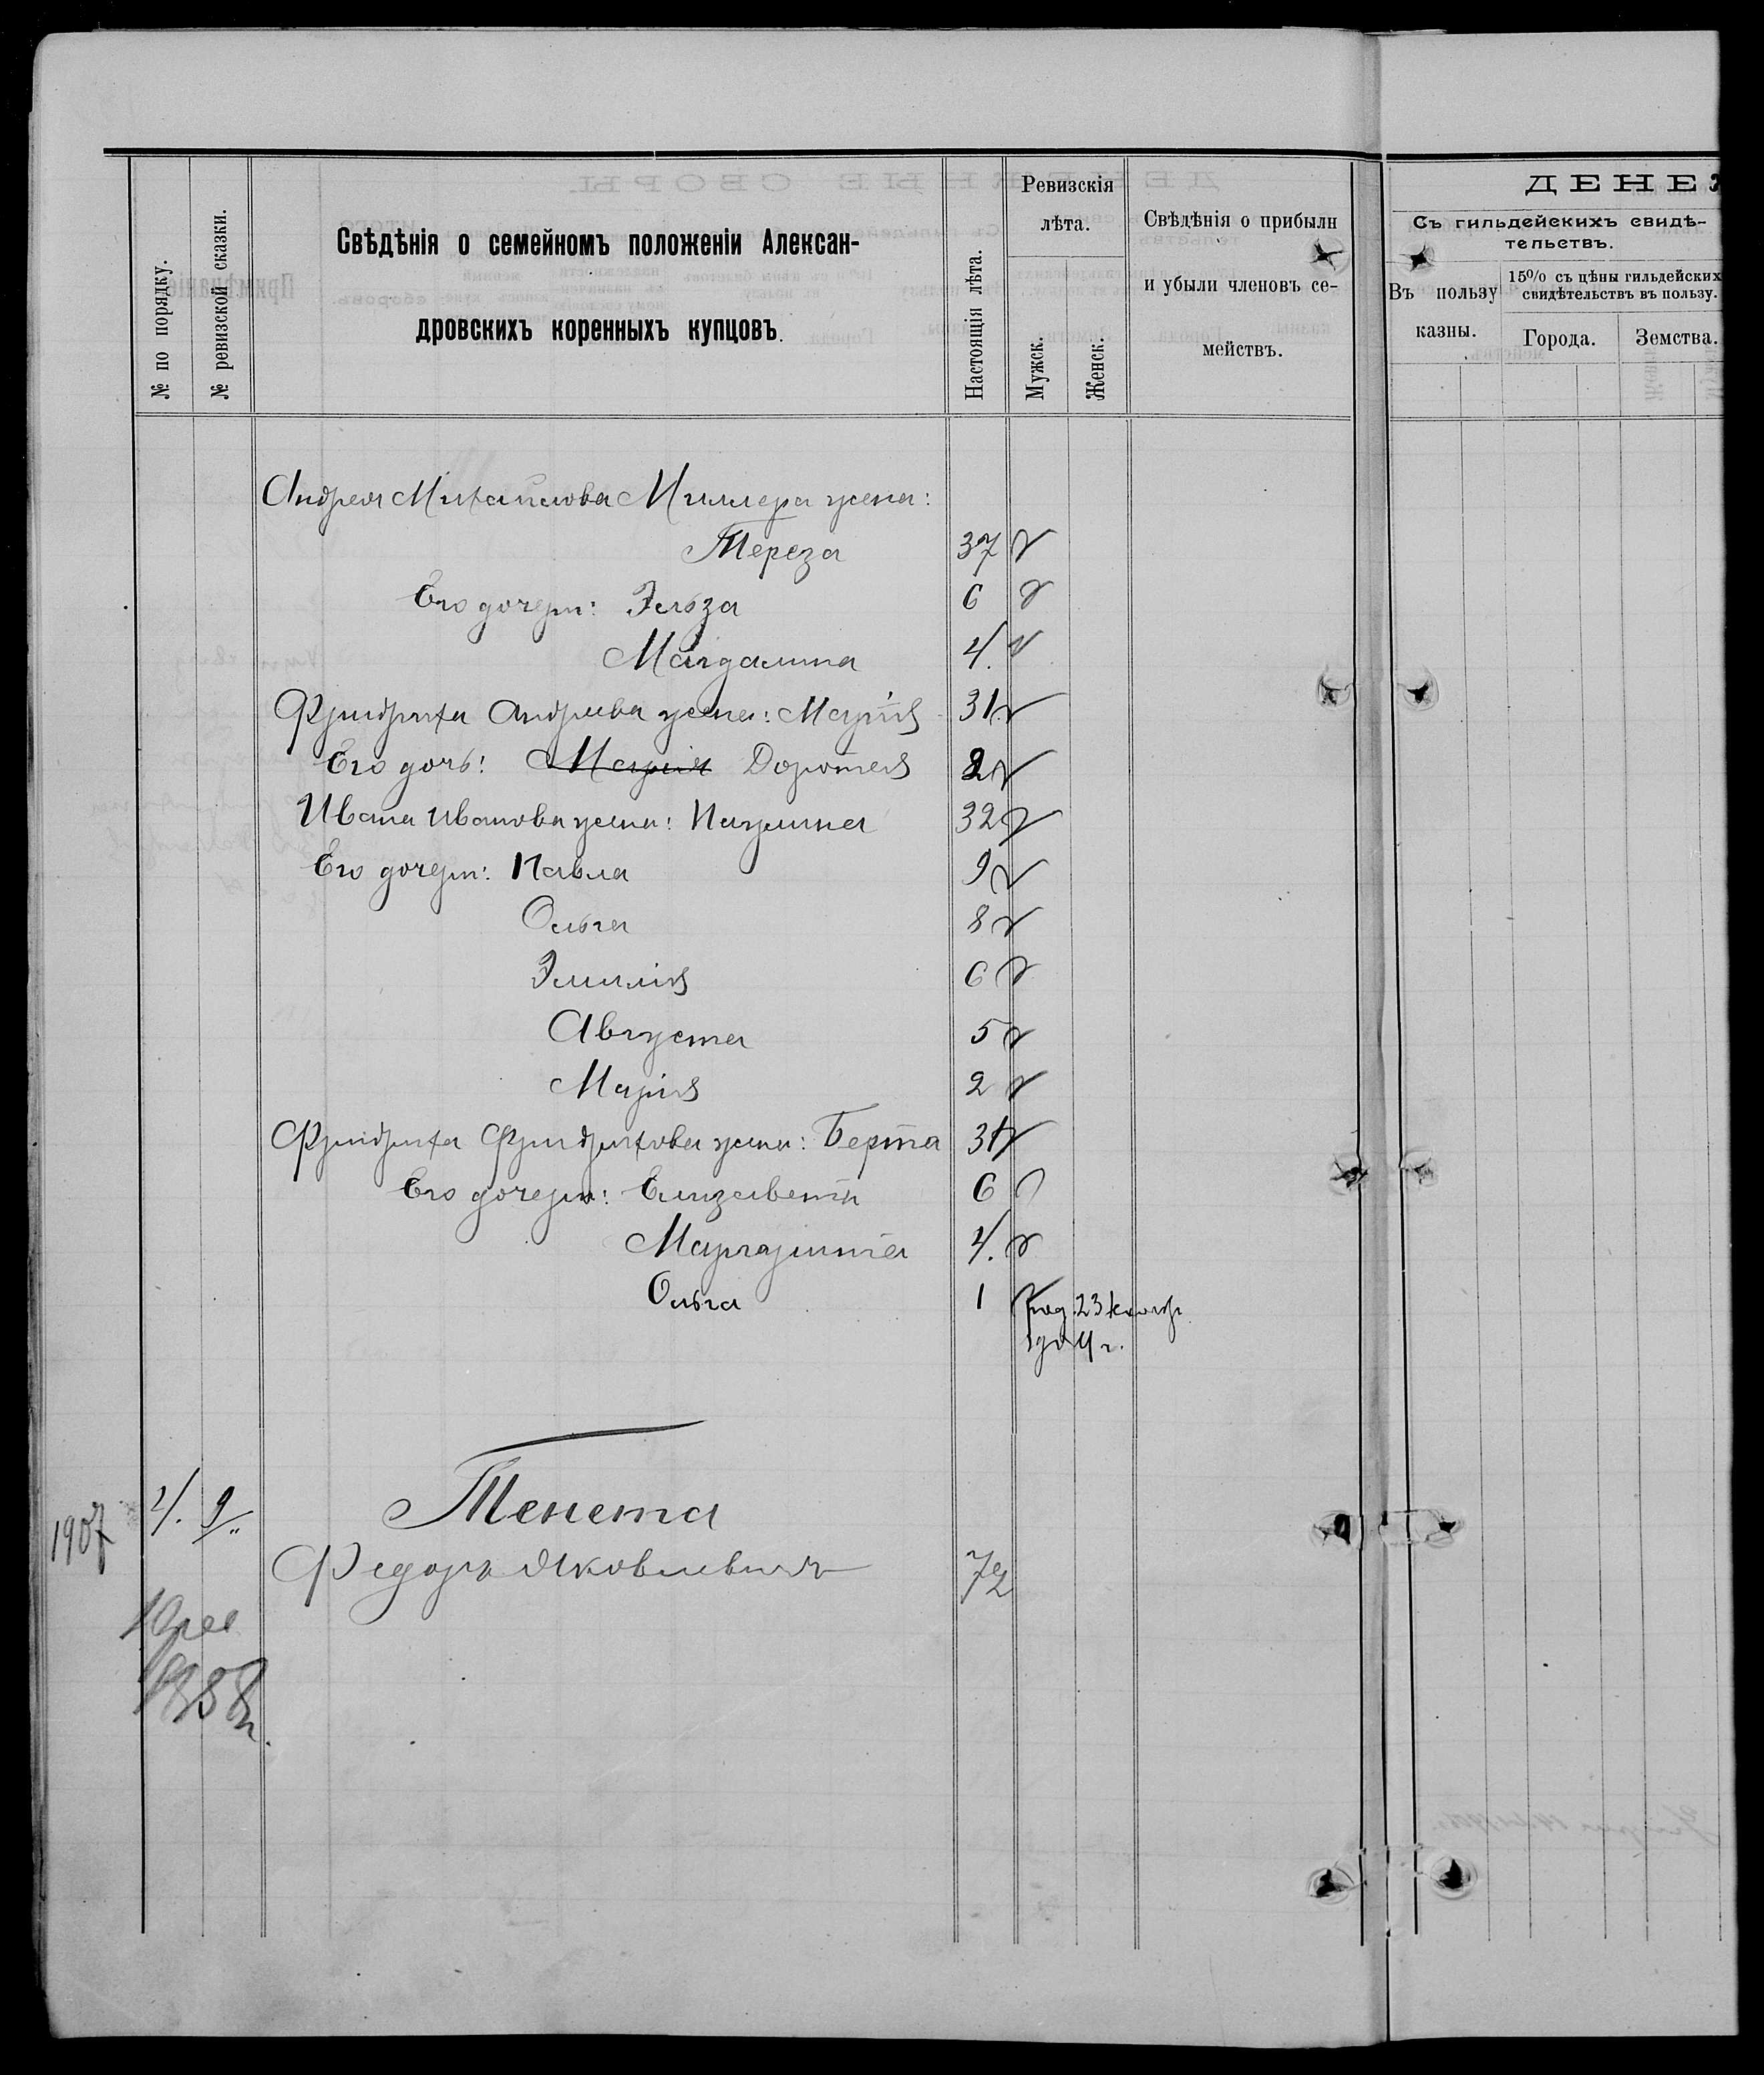 № по порядку.
№ ревизской сказки.
Свѣдѣнія о семейномъ положеніи Алексан-
дровскихъ коренныхъ купцовъ.
Настоящія лѣта.
Ревизскія
лѣта.
Мужск.
Женск.
Свѣдѣнія о прибыли
и убыли членовъ се-
мействъ.
ДЕНЕЖ
Съ гильдейскихъ свидѣ-
тельствъ.
Въ пользу
казны.
15% съ цѣны гильдейских
свидѣтельствъ въ пользу.
Города.
Земства.
Андрея Михайлова Миллера жена:
Тереза 37
Его дочери: Эльза 6
Магдалина 4.
Фридриха Андреева жена: Марія 31
Его дочь: Марія Доротея 2
Ивана Иванова жена: Паулина 32
Его дочери: Павла 9
Ольга 8
Эмилія 6
Августа 5
Марія 2
Фридриха Фридрихова жена: Берта 31
Его дочери: Елизавета 6
Маргарита 4.
Ольга 1 род. 23
1904 г.
1907 4. 9
Тенета
Федоръ Яковлевичъ 72